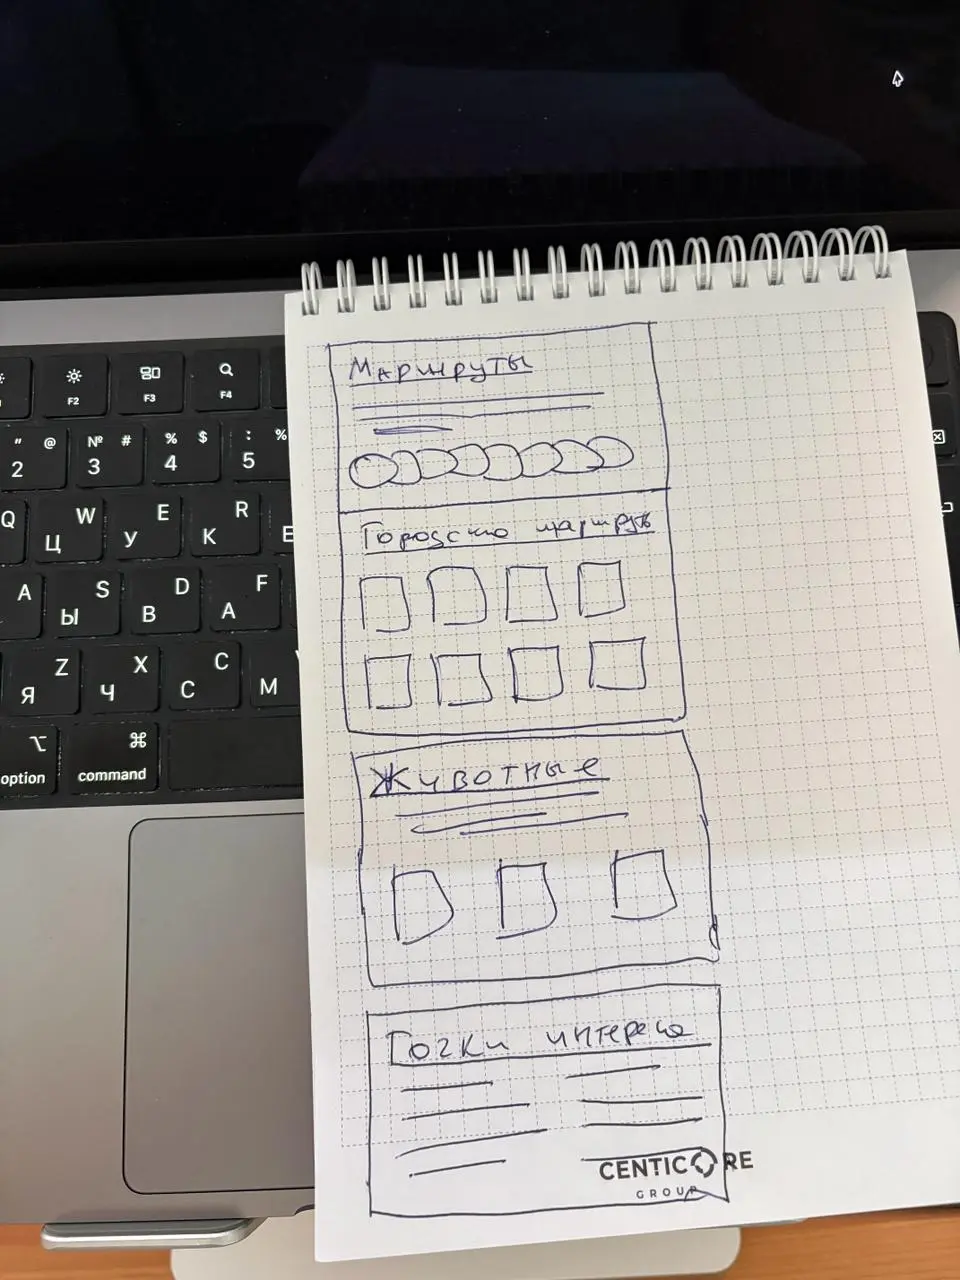 F2
F3
F4
" @
2
№ #
3
% $
4
: %
5
Q W
Ц
E
У
R
К
E
A S
Ы
D
В
F
А
Z
Я
X
Ч
C
С
М
option
command
Маршруты
Городские маршруты
Животные
Точки интереса
CENTICORE
GROUP